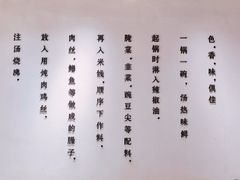 注汤烧沸，
放入用炖肉鸡丝，
肉丝，鳝鱼等做成的臊子，
再入米线，顺序下作料，
腌菜．韭菜．豌豆尖等配料，
起锅时淋入辣椒油，
一锅一碗，汤热味鲜
色，香，味，俱佳